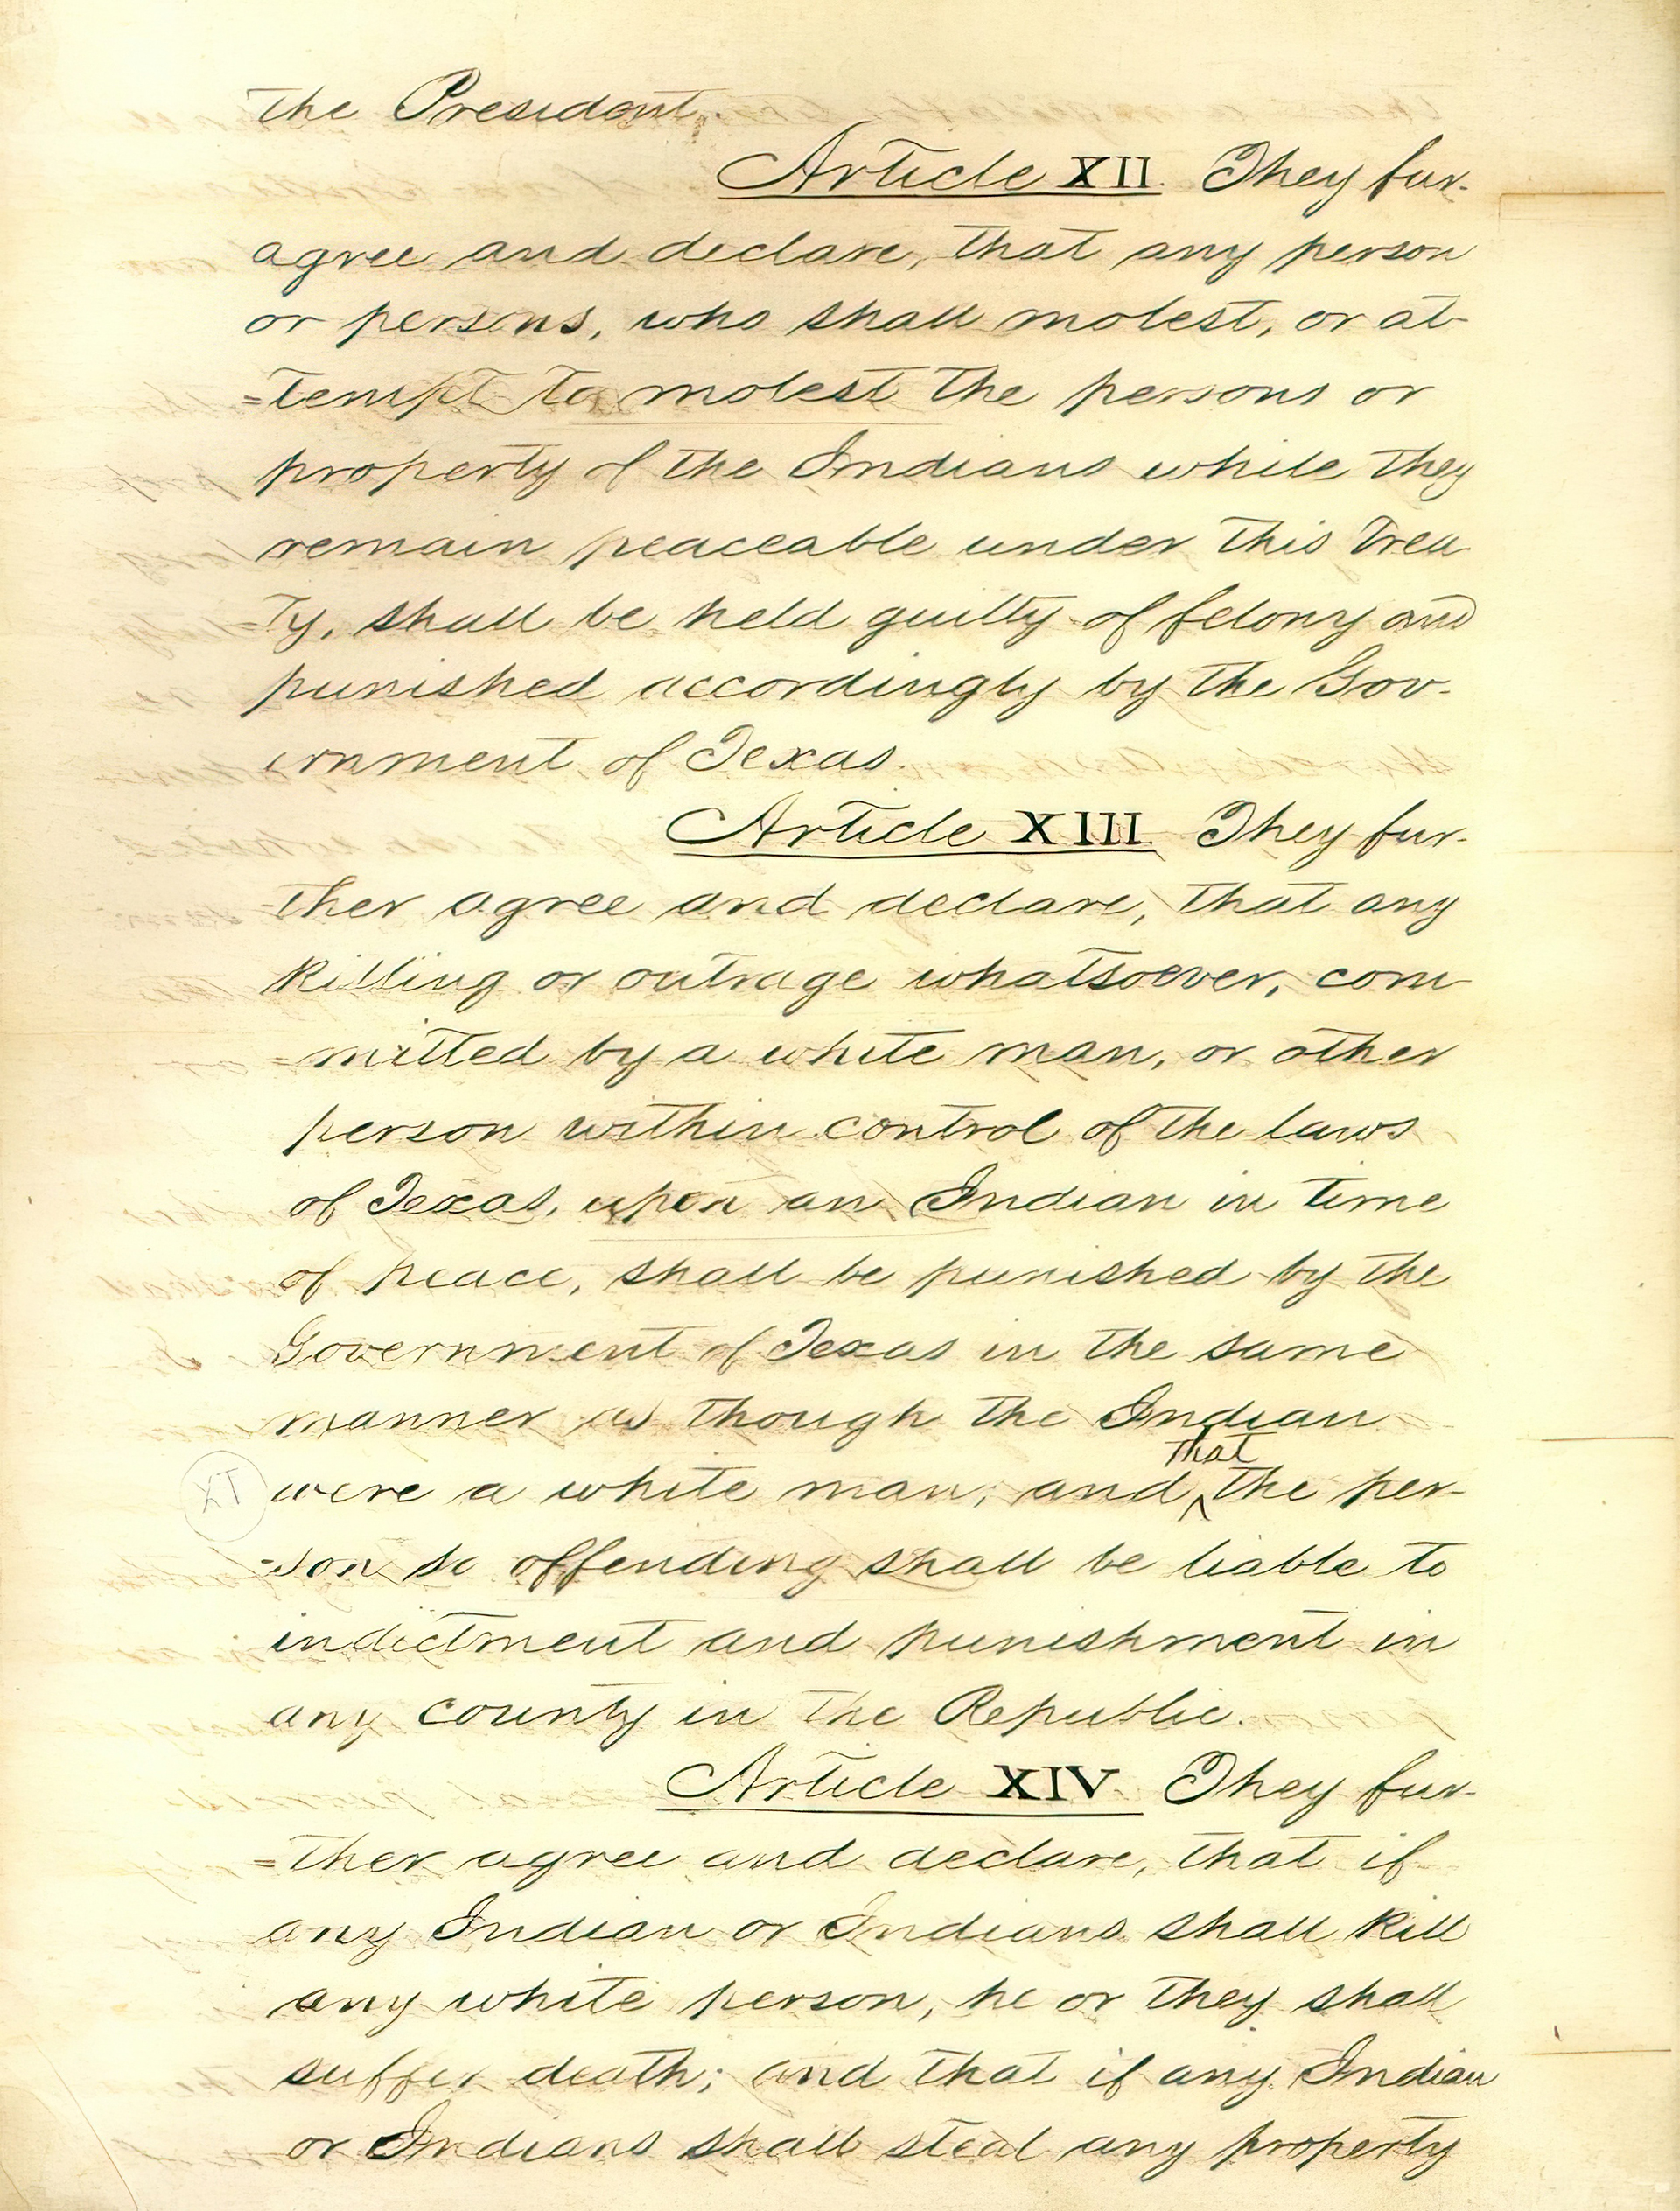 the President.
Article XII. They fur-
agree and declare, that any person
or persons, who shall molest, or at-
=tempt to molest the persons or
property of the Indians while they
remain peaceable under this Trea
=ty, shall be held guilty of felony and
punished accordingly by the Gov-
ernment of Texas.
Article XIII. They fur-
=ther agree and declare, that any
killing or outrage whatsoever, com
=mitted by a white man, or other
person within control of the laws
of Texas, upon an Indian in time
of peace, shall be punished by the
Government of Texas in the same
manner as though the Indian
that
were a white man; and the per-
=son so offending shall be liable to
indictment and punishment in
any county in the Republic.
Article XIV. They fur-
=ther agree and declare, that if
any Indian or Indians shall kill
any white person, he or they shall
suffer death; and that if any Indian
or Indians shall steal any property